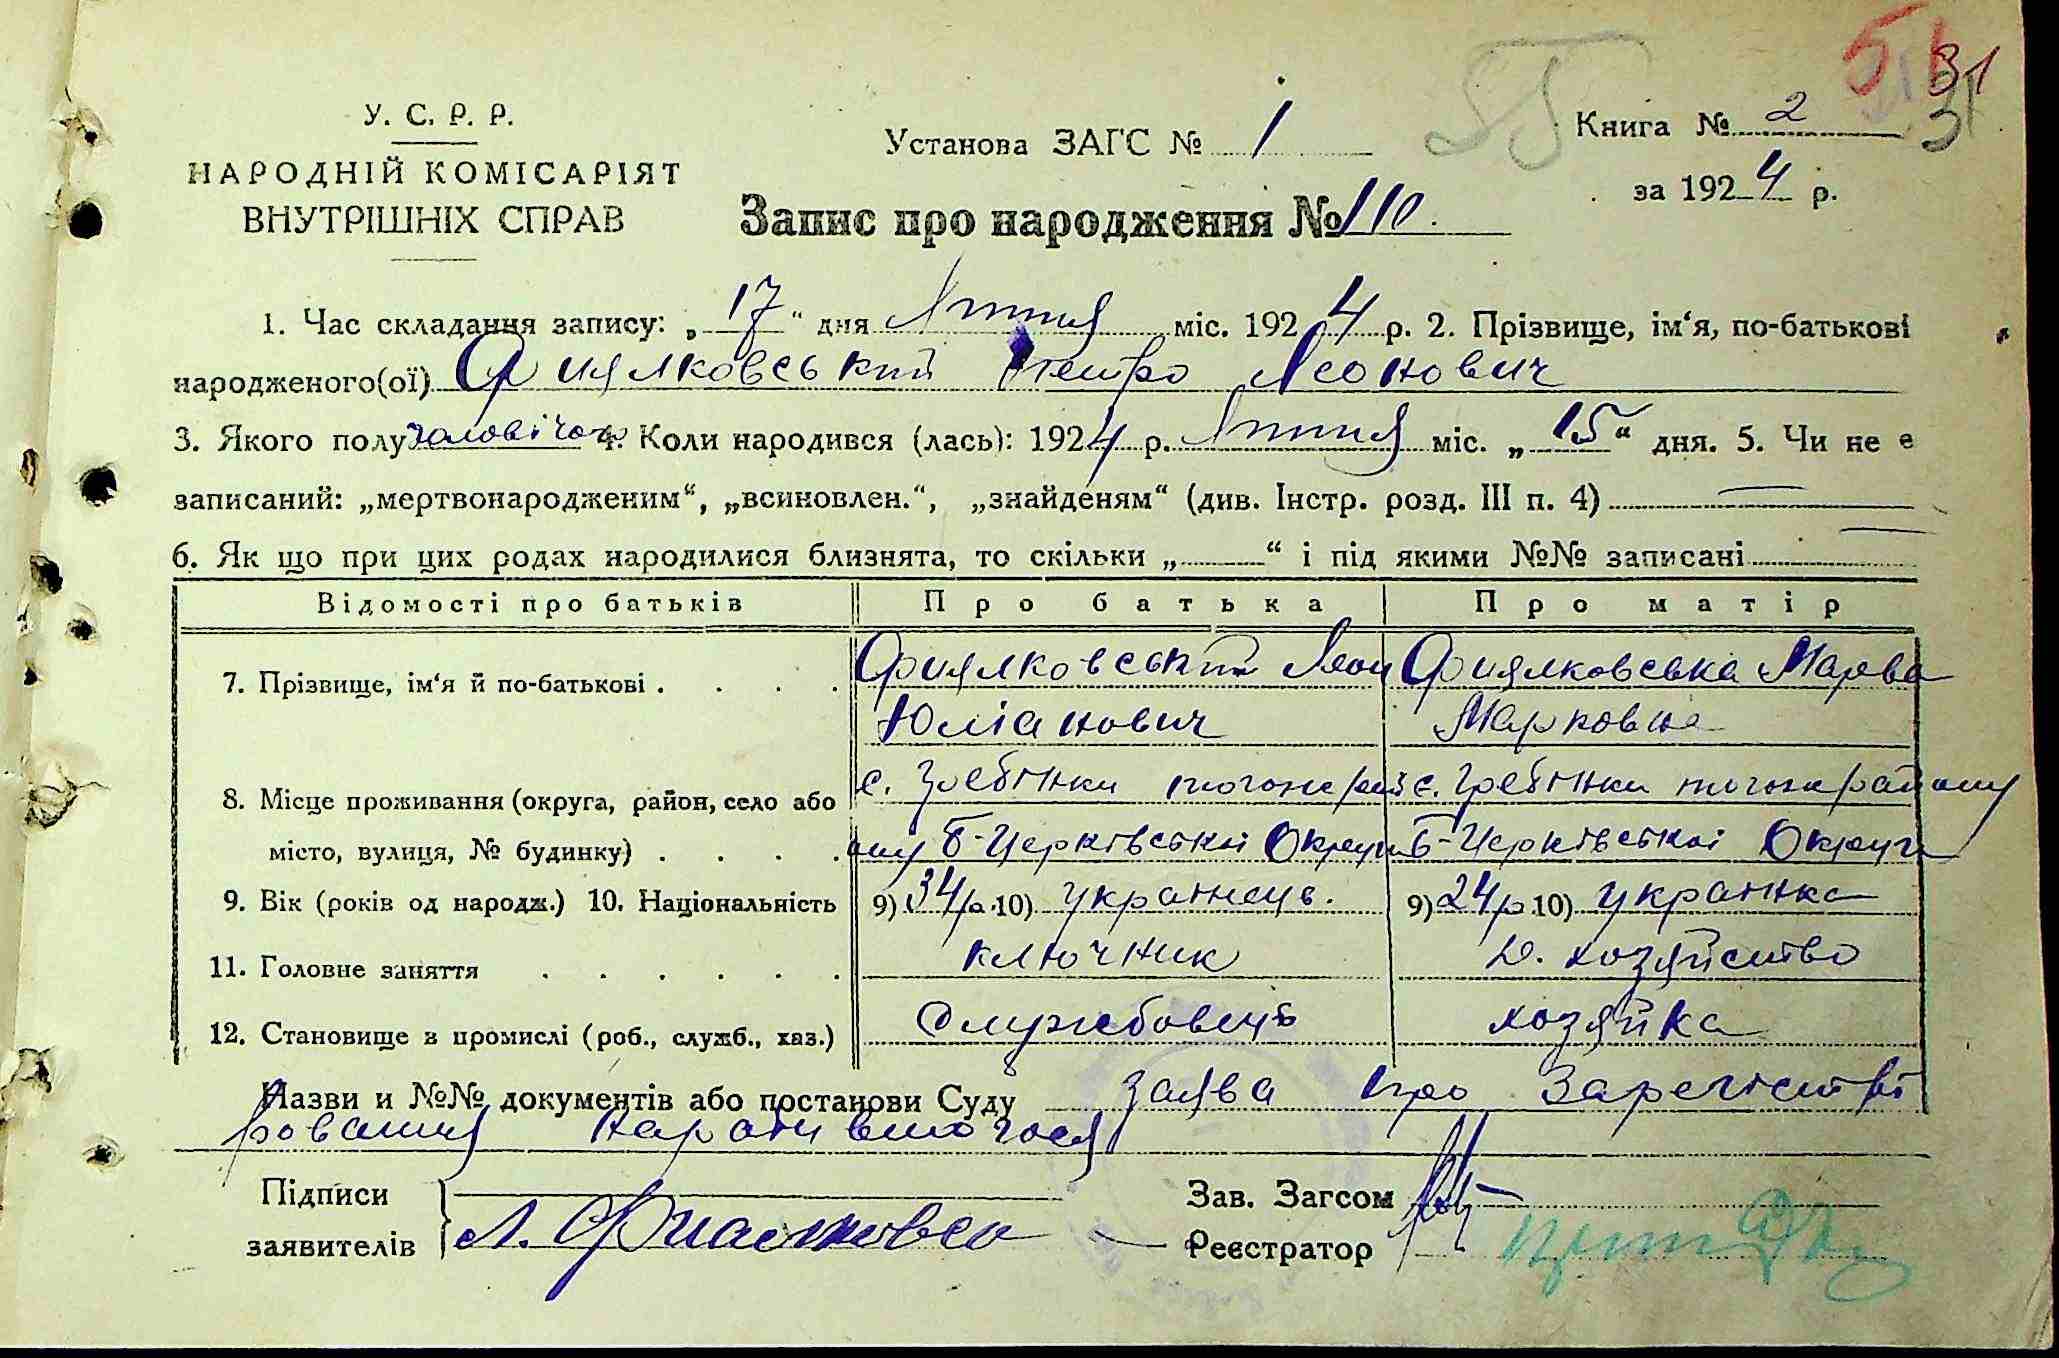 51 31
31
55
У. С. Р. Р.
НАРОДНІЙ КОМІСАРІЯТ
ВНУТРІШНІХ СПРАВ
Установа ЗАГС № 1
Книга № 2
за 1924 р.
Запис про народження № 110.
1. Час складання запису: „17“ дня Липня міс. 1924 р. 2. Прізвище, ім‘я, по-батькові
народженого(ої) Фиялковський Петро Леонович
3. Якого полу чоловічого 4. Коли народився (лась): 1924 р. Липня міс. „15“ дня. 5. Чи не е
записаний: „мертвонародженим“, „всиновлен.“, „знайденям“ (див. Інстр. розд. III п. 4) —
6. Як що при цих родах народилися близнята, то скільки „ “ і під якими №№ записані —
Відомості про батьків Про батька Про матір
7. Прізвище, ім‘я й по-батькові . . . . Фиялковський Леон Фиялковська Марва
Юліанович Марковна
8. Місце проживання (округа, район, село або с. Гребінки того ж рай с. Гребінки того ж району
місто, вулиця, № будинку) . . . . ону Б-Церківської Округи Б-Церківської Округи
9. Вік (років од народж.) 10. Національність 9) 34 р. 10) українець. 9) 24 р. 10) українка
11. Головне заняття . . . . . . ключник д. хозяйство
12. Становище в промислі (роб., служб., хаз.) Службовець хозяйка
Назви и №№ документів або постанови Суду заява про зарегистрі
рования народившогося
Підписи
заявителів Л. Фиалковск
Зав. Загсом
Реєстратор